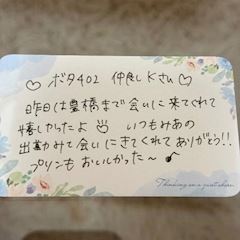 ♡ ボタ402 仲良しKさん ♡
昨日は豊橋まで会いに来てくれて
嬉しかったよ いつもみあの
出勤みて会いにきてくれてありがとう!!
プリンもおいしかった〜♪
Thinking on a quiet shore.